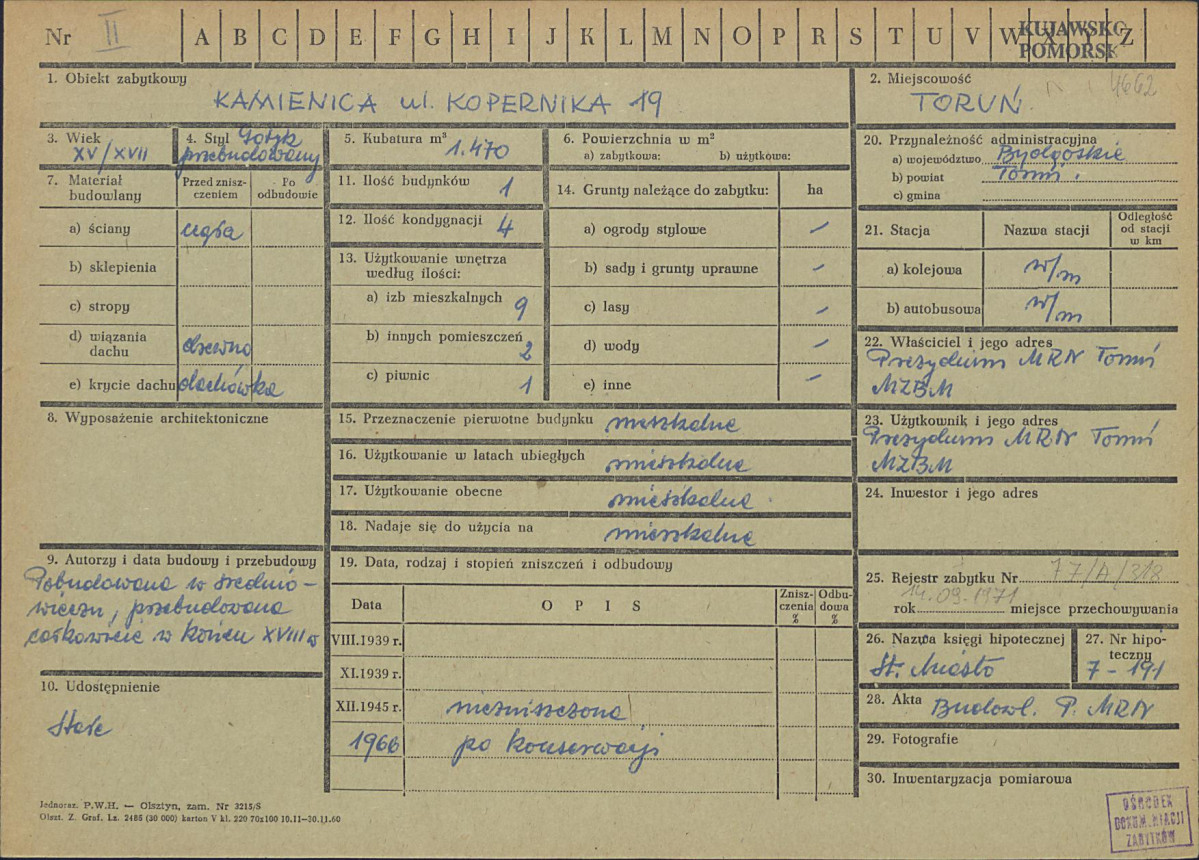 Nr II A B C D E F G H I J K L M N O P R S T U V W X Y Z
KUJAWSKO
POMORSK
1. Obiekt zabytkowy
KAMIENICA ul. KOPERNIKA 19
2. Miejscowość
4662
TORUŃ
3. Wiek
XV/XVII
4. Styl Gotyk
przebudowany
5. Kubatura m³
1.470
6. Powierzchnia w m²
a) zabytkowa: b) użytkowa:
20. Przynależność administracyjna
a) województwo Bydgoskie
b) powiat Toruń.
c) gmina
7. Materiał
budowlany
Przed znisz-
czeniem
Po
odbudowie
a) ściany cegła
b) sklepienia
c) stropy
d) wiązania
dachu drewno
e) krycie dachu dachówka
11. Ilość budynków 1
12. Ilość kondygnacji 4
13. Użytkowanie wnętrza
według ilości:
a) izb mieszkalnych 9
b) innych pomieszczeń 2
c) piwnic 1
14. Grunty należące do zabytku: ha
a) ogrody stylowe –
b) sady i grunty uprawne –
c) lasy –
d) wody –
e) inne –
21. Stacja
Nazwa stacji
Odległość
od stacji
w km
a) kolejowa w/m
b) autobusowa w/m
22. Właściciel i jego adres
Prezydium MRN Toruń
MZBM
8. Wyposażenie architektoniczne
15. Przeznaczenie pierwotne budynku mieszkalne
16. Użytkowanie w latach ubiegłych mieszkalne
17. Użytkowanie obecne mieszkalne
18. Nadaje się do użycia na mieszkalne
23. Użytkownik i jego adres
Prezydium MRN Toruń
MZBM
24. Inwestor i jego adres
9. Autorzy i data budowy i przebudowy
Pobudowana w średnio-
wieczu, przebudowana
całkowicie w końcu XVIII w
10. Udostępnienie
Stałe
19. Data, rodzaj i stopień zniszczeń i odbudowy
Data
OPIS
Znisz-
czenia
%
Odbu-
dowa
%
VIII.1939 r.
XI.1939 r.
XII.1945 r. niezniszczona
1966 po konserwacji
25. Rejestr zabytku Nr 77/A/318
14.09.1971
rok miejsce przechowywania
26. Nazwa księgi hipotecznej
St. Miasto
27. Nr hipo-
teczny
7-191
28. Akta Budowl. P. MRN
29. Fotografie
30. Inwentaryzacja pomiarowa
Jednoraz. P.W.H. — Olsztyn, zam. Nr 3215/S
Olszt. Z. Graf. Lz. 2486 (30 000) karton V kl. 220 70x100 10.11-30.11.60
OŚRODEK
DOKUMENTACJI
ZABYTKÓW